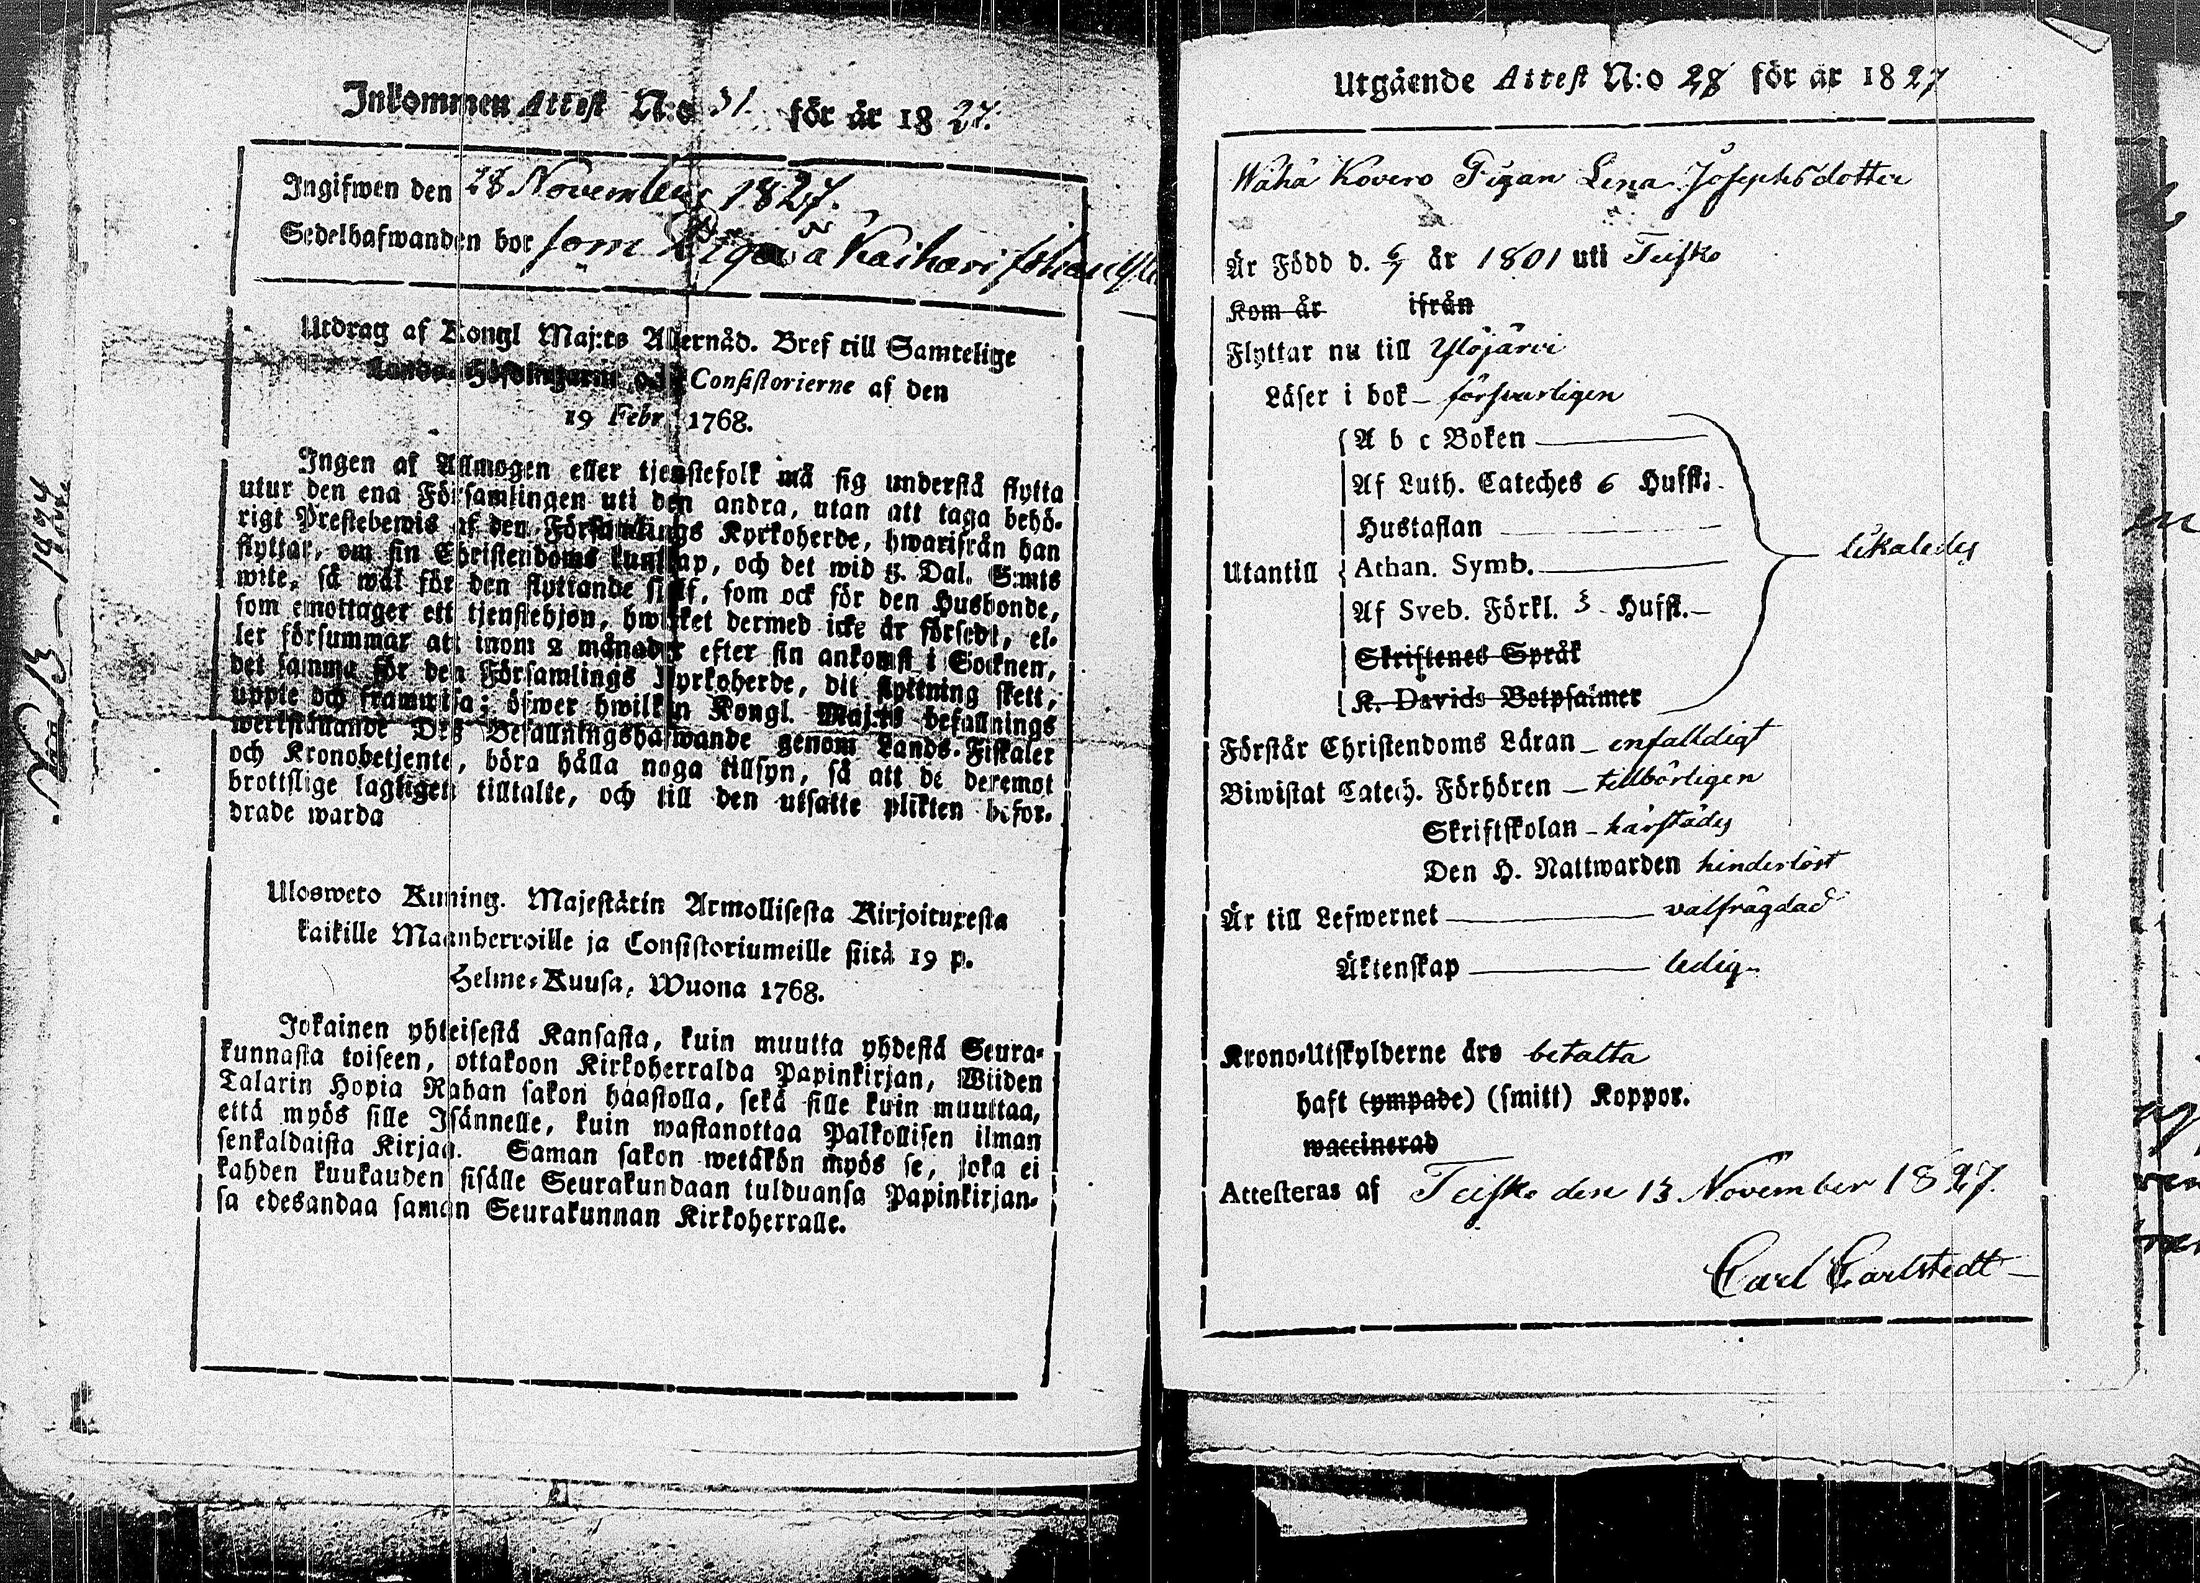 Inkommen Attest N:o 31. för år 1827.
Ingifwen den 28 November 1827.
Sedelhafwanden bor som Piga å Kaihari
Utdrag af Kongl Maj:ts Allernåd. Bref till Samtelige
Lands-Höfdingarne och Consistorierne af den
19 Febr. 1768.
Ingen af Allmogen eller tjenstefolk må sig understå flytta
utur den ena Församlingen uti den andra, utan att taga behö-
rigt Prestebewis af den Församlings Kyrkoherde, hwarifrån han
flyttar, om sin Christendoms kunskap, och det wid 5. Dal. S:mts
wite, så wäl för den flyttande sielf, som ock för den Husbonde,
som emottager ett tjenstehjon, hwilket dermed icke är försedt, el-
ler försummar att inom 2 månader efter sin ankomst i Socknen,
det samma för den Församlings Kyrkoherde, dit flyttning skett,
uppte och framwisa; öfwer hwilken Kongl. Maj:ts befallnings
werkställande Deß Befallningshafwande genom Lands-Fiskaler
och Kronobetjente, böra hålla noga tillsyn, så att de deremot
brottslige lagligen tilltalte, och till den utsatte plikten befor-
drade warda
Ulosweto Kuning. Majestätin Armollisesta Kirjoituxesta
kaikille Maanherroille ja Consistoriumeille siitä 19 p.
Helme-Kuusa, Wuona 1768.
Jokainen yhteisestä Kansasta, kuin muutta yhdestä Seura-
kunnasta toiseen, ottakoon Kirkoherralda Papinkirjan, Wiiden
Talarin Hopia Rahan sakon haastolla, sekä sille kuin muuttaa,
että myös sille Isännelle, kuin wastanottaa Palkollisen ilman
senkaldaista Kirjaa. Saman sakon wetäkön myös se, joka ei
kahden kuukauden sisälle Seurakundaan tulduansa Papinkirjan-
sa edesandaa saman Seurakunnan Kirkoherralle.
Utgående Attest N:o 28 för år 1827
Wähä Kovero Pigan Lena Josephsdotter
Är Född d. 6/7 år 1801 uti Teisko
Kom år ifrån
Flyttar nu till Ylöjärvi
Läser i bok – försvarligen
A b c Boken
Af Luth. Cateches 6 Hufst:
Hustaflan
Utantill Athan. Symb. likaledes
Af Sveb. Förkl. 3 Hufst.
Skriftenes Språk
K. Davids Botpsalmer
Förstår Christendoms Läran – enfalldigt
Biwistat Catech. Förhören – tillbörligen
Skriftskolan – härstädes
Den H. Nattwarden hinderlöst
Är till Lefwernet – välfrägdad
Äktenskap – ledig
Krono-Utskylderne äro betalta
haft (ympade) (smitt) Koppor.
waccinerad
Attesteras af Teisko den 13 November 1827.
Carl Carlstedt